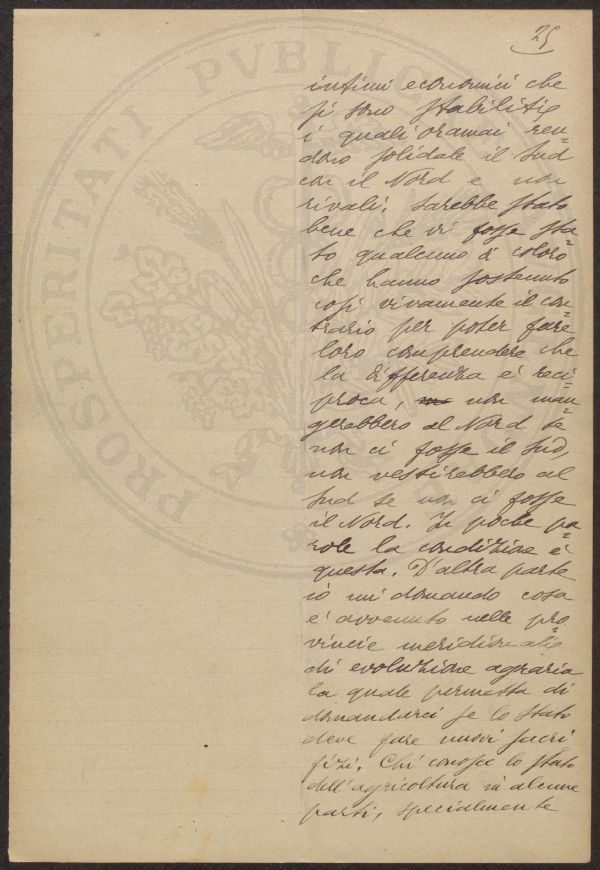 25
PROSPERITATI PVBLIC
intimi economici che
si sono stabiliti e
i quali oramai ren=
dono solidale il Sud
con il Nord e non
rivali. Sarebbe stato
bene che vi fosse sta=
to qualcuno di coloro
che hanno sostenuto
così vivamente il con=
trario per poter fare
loro comprendere che
la differenza è reci=
proca, non man=
gerebbero al Nord se
non ci fosse il Sud,
non vestirebbero al
Sud se non ci fosse
il Nord. In poche pa=
role la condizione è
questa. D'altra parte
io mi domando cosa
è avvenuto nelle pro=
vincie meridionali
di evoluzione agraria
la quale permetta di
domandarci se lo Stato
deve fare nuovi sacri
fizi. Chi conosce lo stato
dell'agricoltura in alcune
parti, specialmente